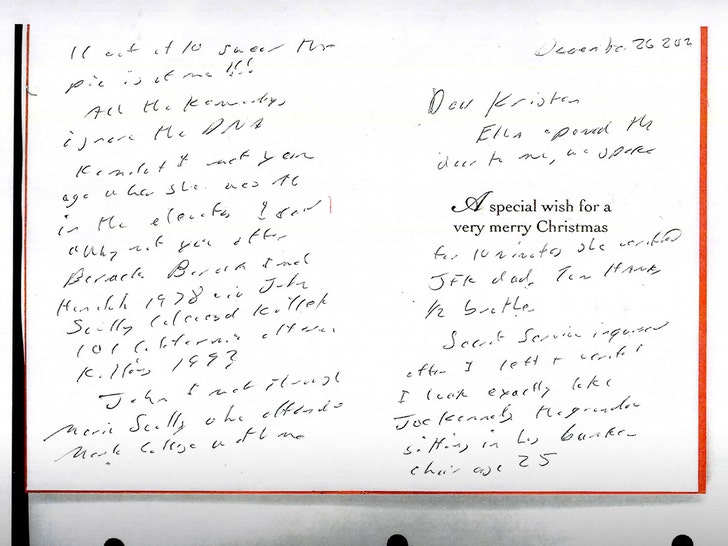 December 26 202
Dear Kristen
Ella opened the
door to me, we spoke
A special wish for a
very merry Christmas
for 10 minutes she verified
JFK dad, Tom Hanks
1/2 brother
Secret Service inquired
after I left +
I look exactly like
Joe Kennedy the grandson
sitting in his
chair age 25
11 out of 10 swear the
pic is of me !!!
All the Kennedys
ignore the DNA
I met your
age when she was 16
in the elevator I said
why not you
Barack Barack I met
1978 via John
Scully killed
101 California
Killing 1993
John I met through
Marie Scully who attended
College with me